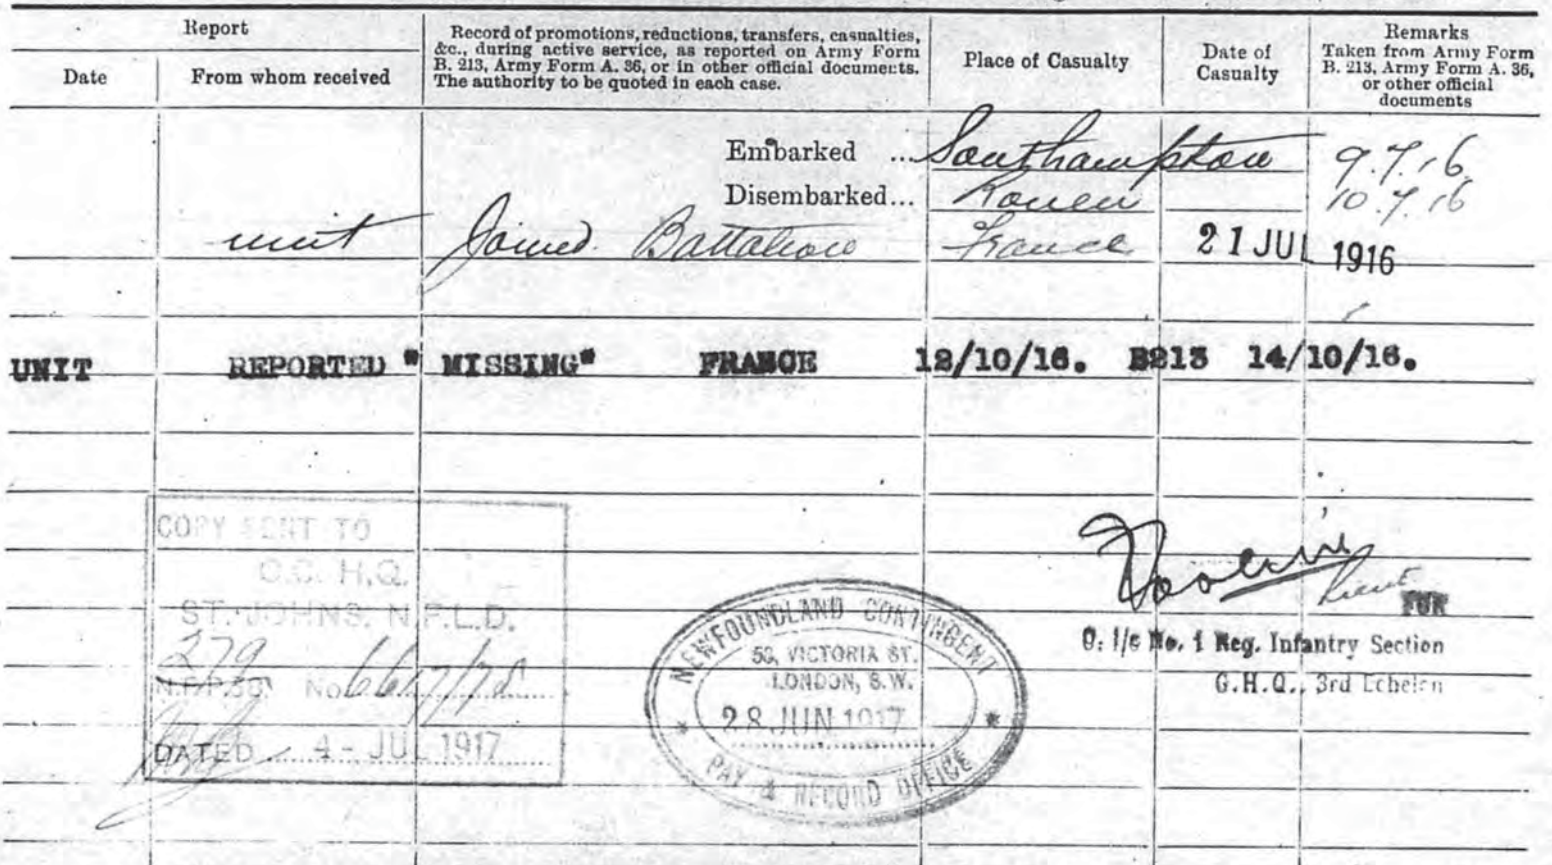 Report
Date
From whom received
Record of promotions, reductions, transfers, casualties,
&c., during active service, as reported on Army Form
B. 213, Army Form A. 36, or in other official documents.
The authority to be quoted in each case.
Place of Casualty
Date of
Casualty
Remarks
Taken from Army Form
B. 213, Army Form A. 36,
or other official
documents
Embarked ... Southampton 9.7.16
Disembarked... Rouen 10.7.16
unit Joined Battalion France 21 JUL 1916
UNIT REPORTED " MISSING" FRANCE 12/10/16. B213 14/10/16.
COPY SENT TO
O.C. H.Q.
ST. JOHNS, N.F.L.D.
279
No.
DATED 4 - JUL 1917
NEWFOUNDLAND CONTINGENT
58, VICTORIA ST.
LONDON, S.W.
28 JUN 1917
PAY & RECORD OFFICE
Lieut
FOR
O. I/c No. 1 Reg. Infantry Section
G.H.Q., 3rd Echelon